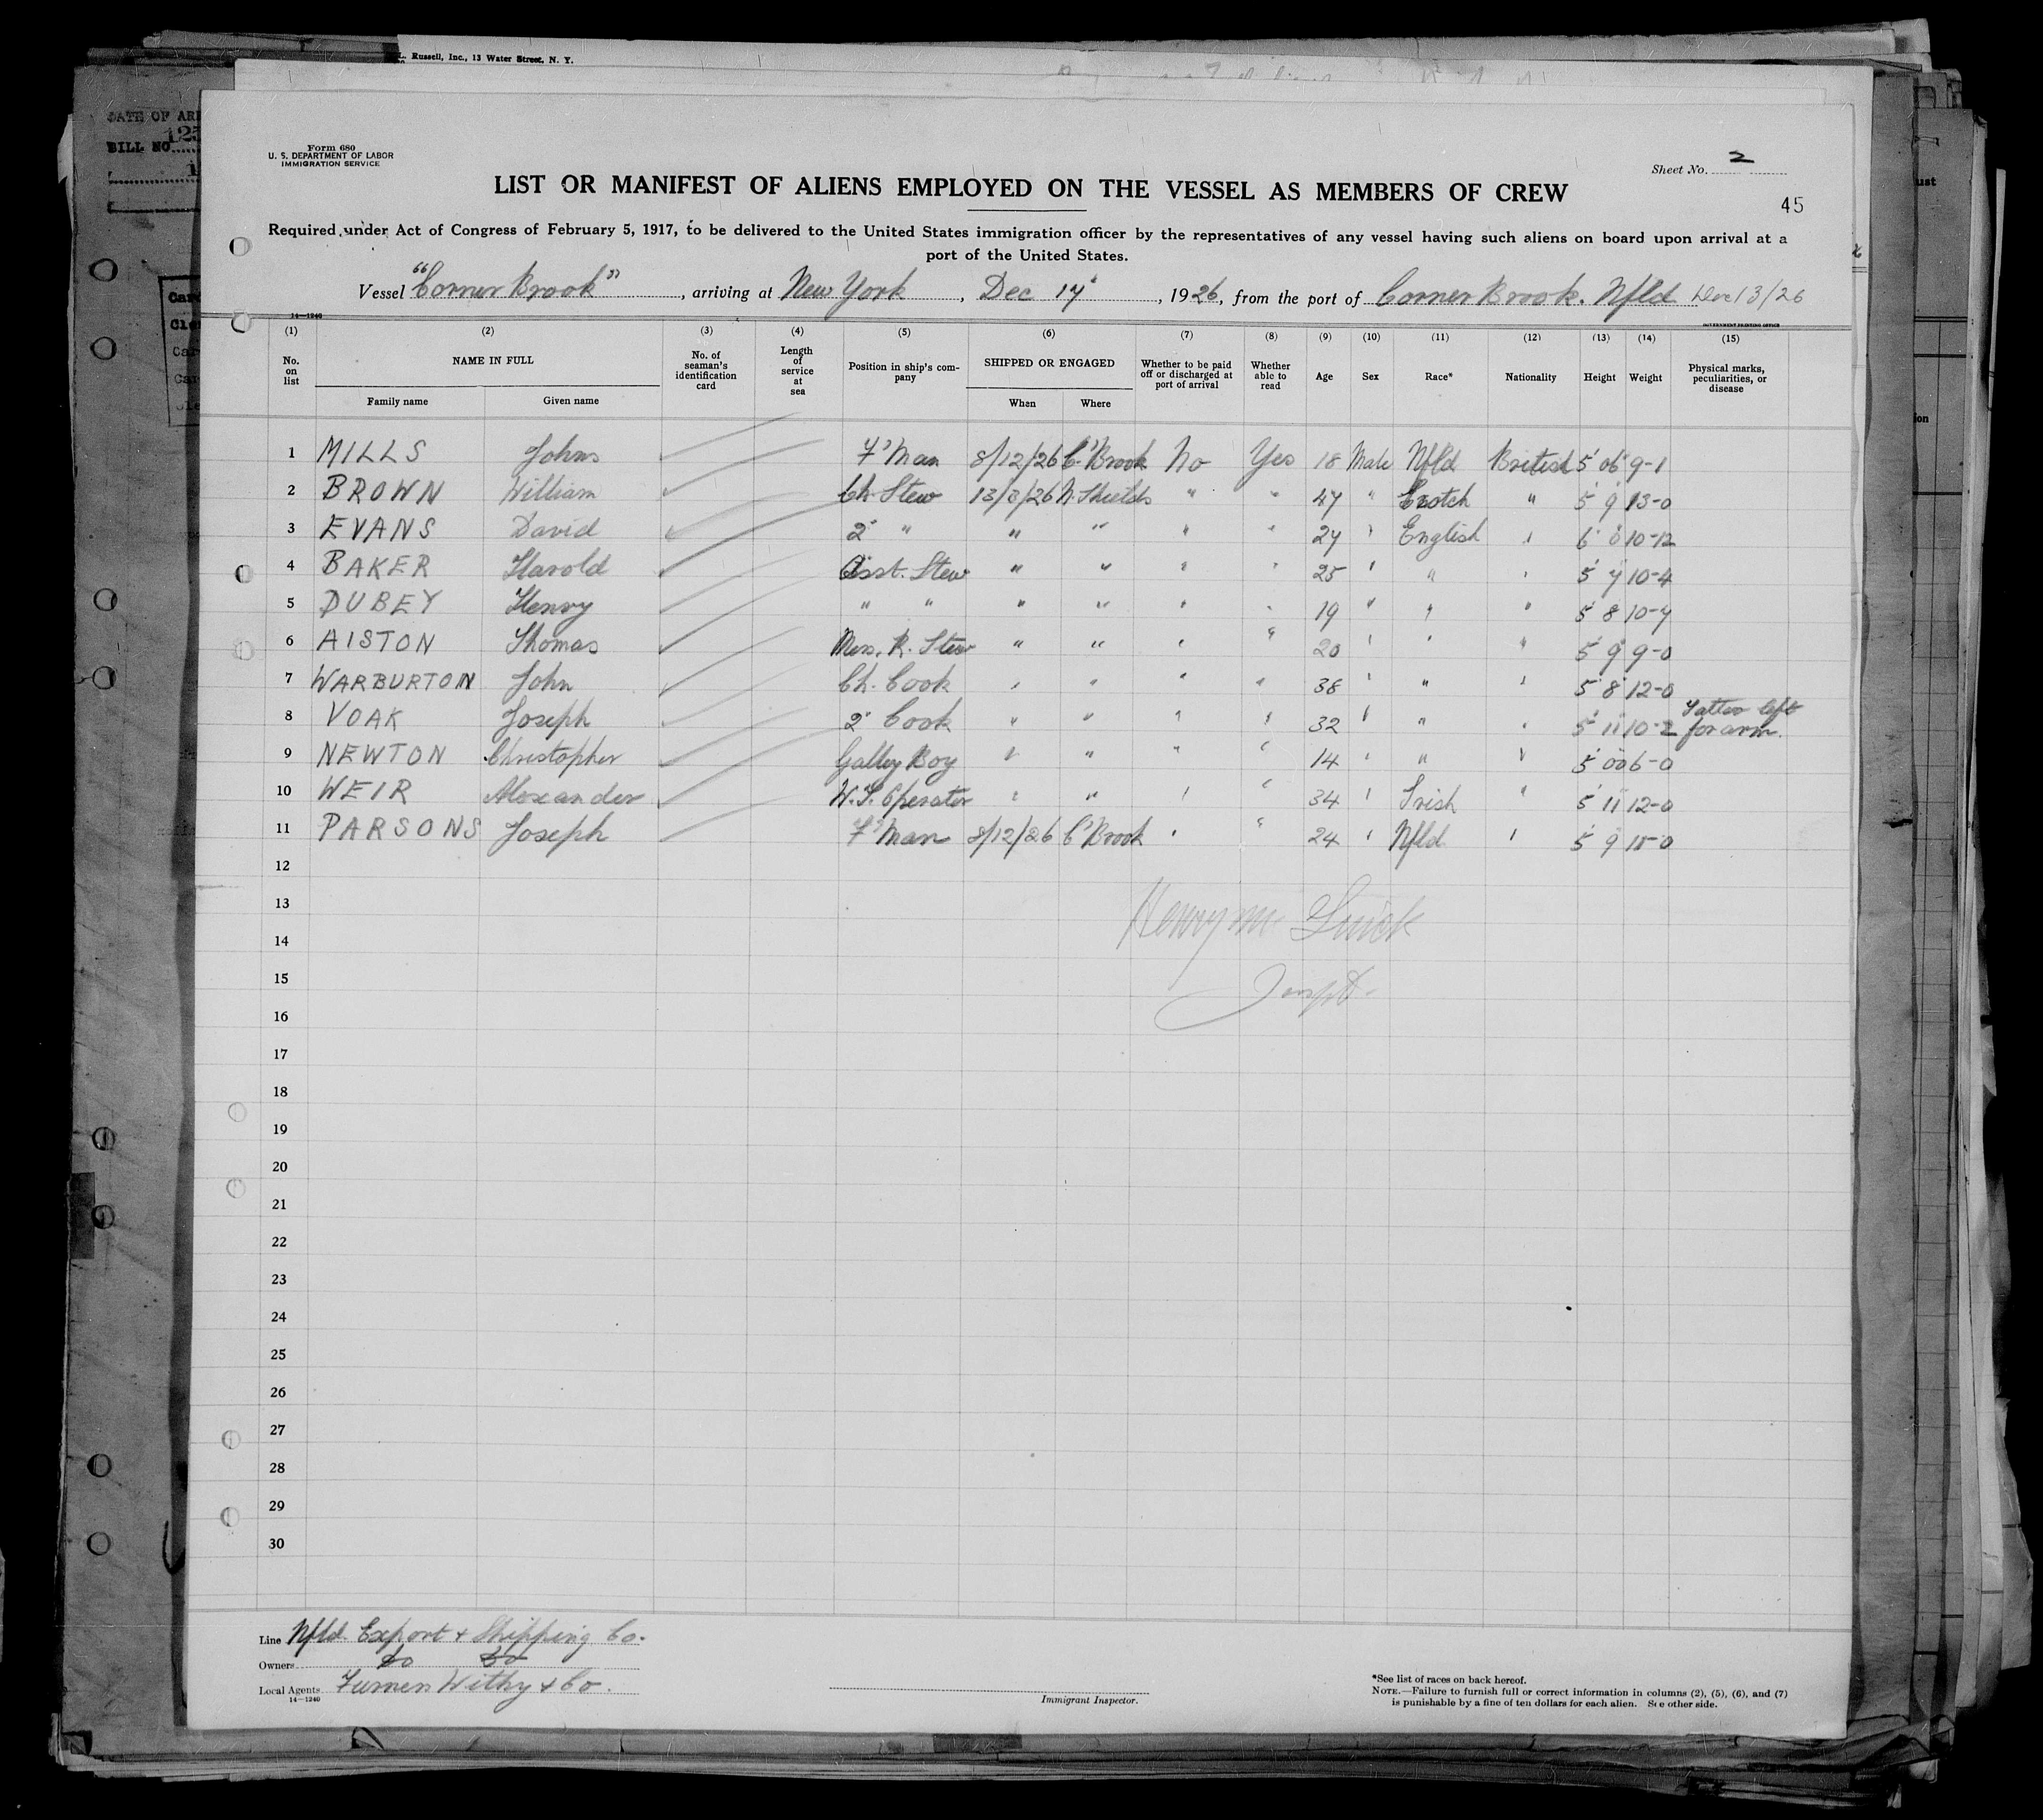 L. Russell, Inc., 13 Water Street, N. Y.
DATE OF ARR
BILL NO. 125
Form 680
U. S. DEPARTMENT OF LABOR
IMMIGRATION SERVICE
Sheet No. 2
LIST OR MANIFEST OF ALIENS EMPLOYED ON THE VESSEL AS MEMBERS OF CREW
45
Required under Act of Congress of February 5, 1917, to be delivered to the United States immigration officer by the representatives of any vessel having such aliens on board upon arrival at a
port of the United States.
Vessel "Corner Brook", arriving at New York, Dec 17", 1926, from the port of Corner Brook. Nfld Dec 13/26
14—1240
GOVERNMENT PRINTING OFFICE
(1) (2) (3) (4) (5) (6) (7) (8) (9) (10) (11) (12) (13) (14) (15)
No. on list NAME IN FULL No. of seaman's identification card Length of service at sea Position in ship's company SHIPPED OR ENGAGED Whether to be paid off or discharged at port of arrival Whether able to read Age Sex Race* Nationality Height Weight Physical marks, peculiarities, or disease
Family name Given name When Where
1 MILLS Johns F'Man 8/12/26 C'Brook No Yes 18 Male Nfld British 5' 06 9-1
2 BROWN William Ch. Stew 13/8/26 N. Shields " " 47 " Scotch " 5 9 13-0
3 EVANS David 2" " " " " " 27 " English " 6' 0 10-12
4 BAKER Harold Asst. Stew " " " " 25 " " " 5 7 10-4
5 DUBEY Henry " " " " " " 19 " " " 5 8 10-7
6 AISTON Thomas Mess. R. Stew " " " " 20 " " " 5 9 9-0
7 WARBURTON John Ch. Cook " " " " 38 " " " 5 8 12-0
8 VOAK Joseph 2" Cook " " " " 32 " " " 5 11 10-2 Tattoo left forarm.
9 NEWTON Christopher Galley Boy " " " " 14 " " " 5 00 6-0
10 WEIR Alexander W.T. Operator " " " " 34 " Irish " 5 11 12-0
11 PARSONS Joseph F'Man 8/12/26 C'Brook " " 24 " Nfld " 5 9 15-0
12
13
14
15
16
17
18
19
20
21
22
23
24
25
26
27
28
29
30
Line Nfld. Export + Shipping Co.
Owners do do
Local Agents Furness Withy & Co.
14—1240
Immigrant Inspector.
*See list of races on back hereof.
NOTE.—Failure to furnish full or correct information in columns (2), (5), (6), and (7)
is punishable by a fine of ten dollars for each alien. See other side.